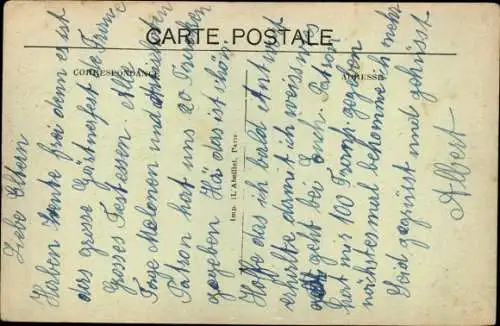 CARTE POSTALE
CORRESPONDANCE
ADRESSE
Imp. (L'Abeille), Paris
Liebe Eltern
Haben heute frei denn es ist
das grosse Gärtnerfest de France
Grosses Festessen Alle
Tage Melonen und
Patron hat uns 20 Fränken
gegeben Ha das ist schön
Hoffe das ich bald Antwort
erhalte damit ich weiss was
geht bei Euch. Patron
hat mir 100 Frank gegeben
nächstesmal bekomme ich mehr
Seid gegrüsst und geküsst
Albert